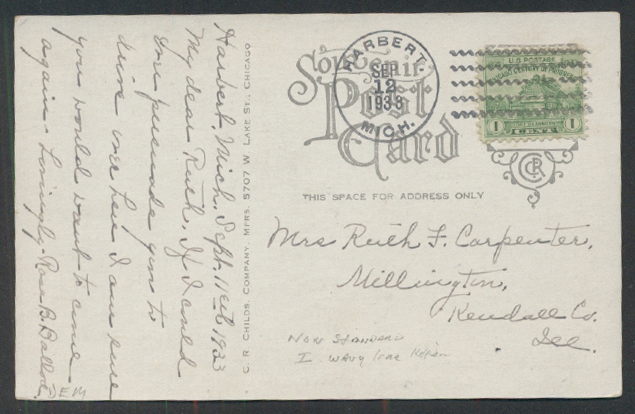 Harbert, Mich. Sept. 11th 1933
My dear Ruth. If I could
persuade you to
drive over here I am sure
you would want to come
again. Lovingly - B. Ballou
DEM
C. R. CHILDS. COMPANY. MFRS. 5707 W. LAKE ST., CHICAGO
Souvenir
Post
Card
HARBERT.
SEP
12
1933
MICH.
U.S. POSTAGE
1 CENT 1
CRC
THIS SPACE FOR ADDRESS ONLY
Mrs Ruth F. Carpenter,
Millington,
Kendall Co.
Ill.
NON STANDARD
I. WAVY LINE